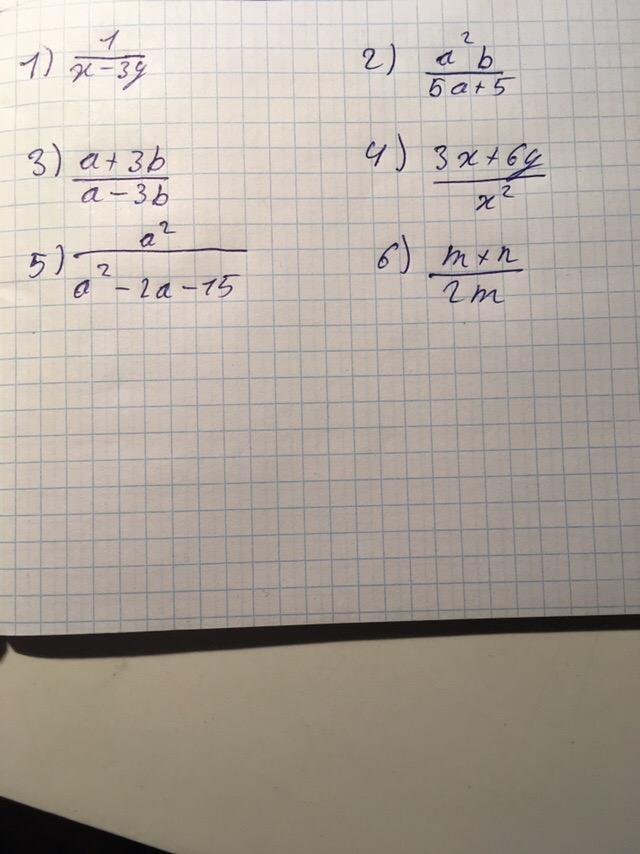 1) 1/(x-3y) 2) a²b/(5a+5)
3) (a+3b)/(a-3b) 4) (3x+6y)/x²
5) a²/(a²-2a-15) 6) (m×n)/(2m)